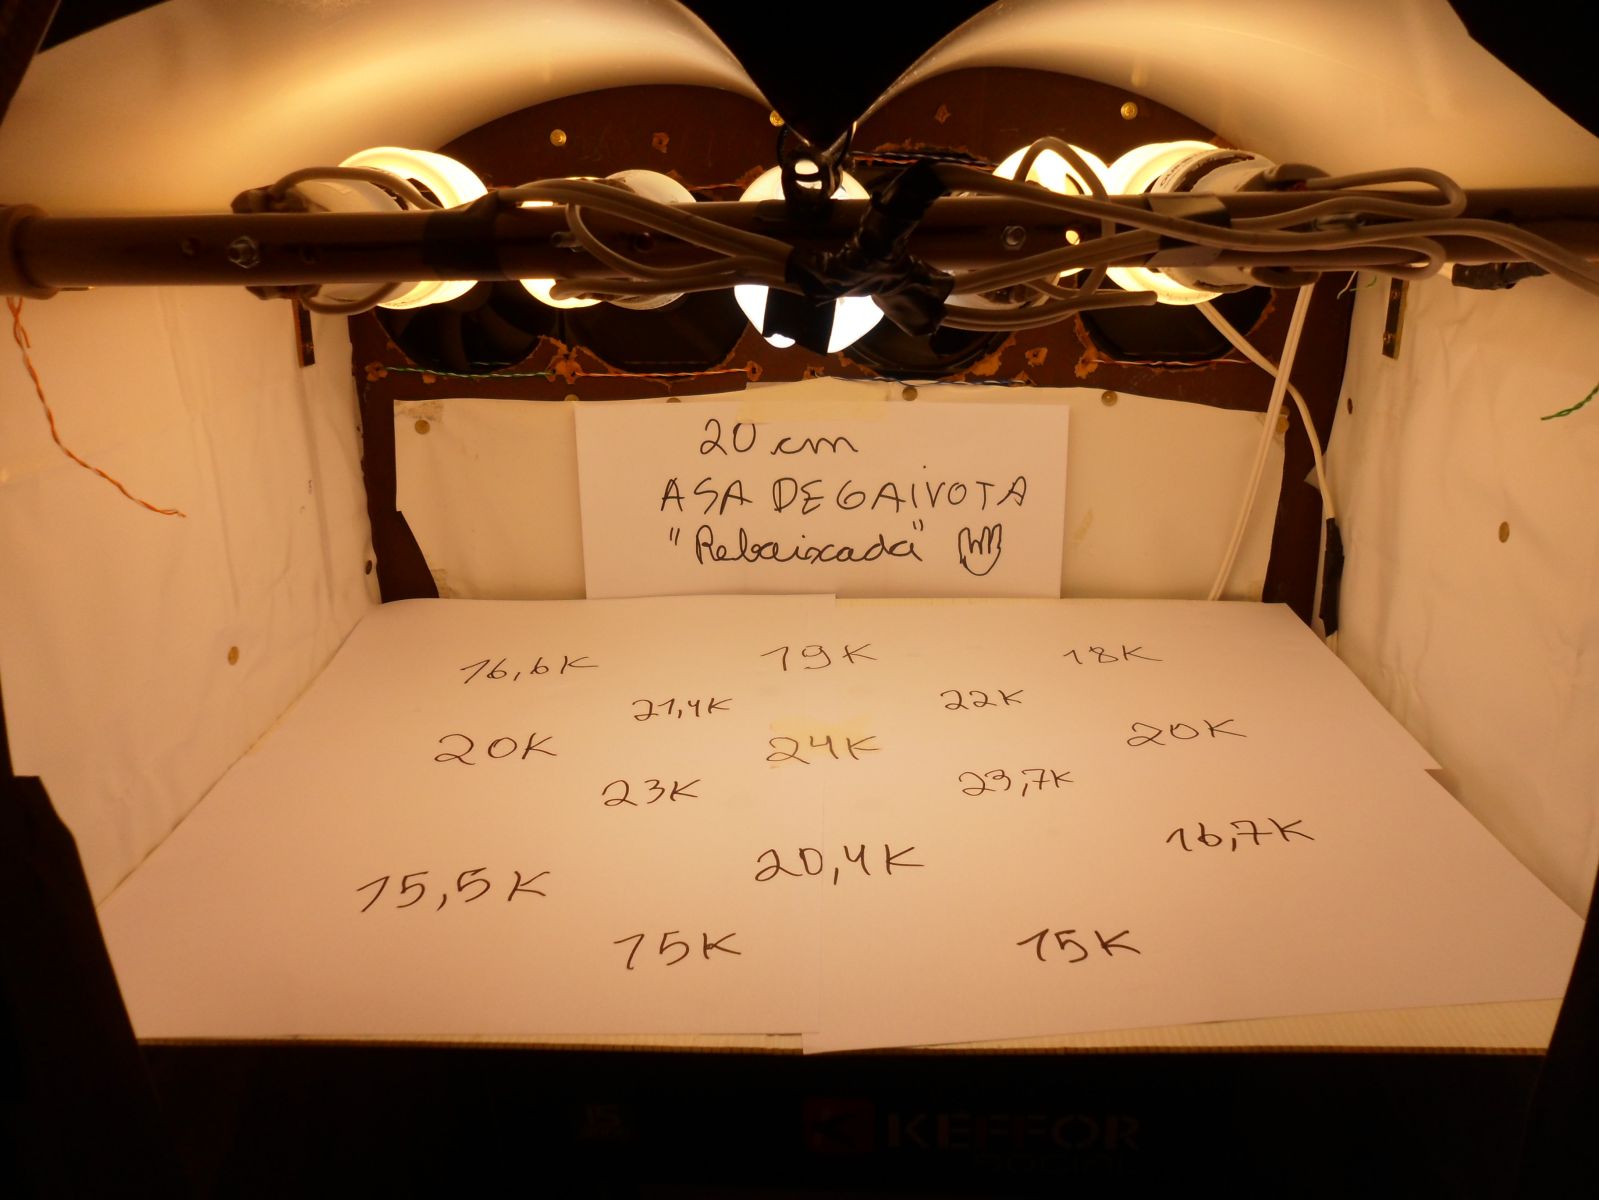 20 cm
ASA DE GAIVOTA
"Rebaixada"
16,6K 19K 18K
21,4K 22K
20K 24K 20K
23K 23,7K
15,5K 20,4K 16,7K
15K 15K
KEFFOR